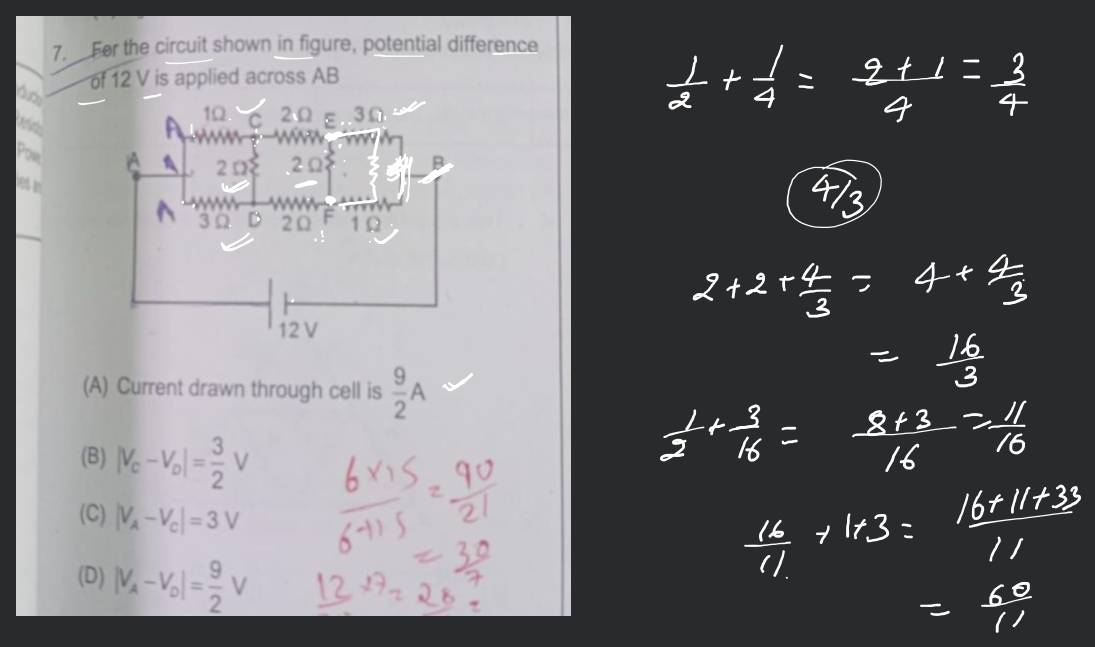 7. For the circuit shown in figure, potential difference
of 12 V is applied across AB
1Ω C 2Ω E 3Ω
A
A A 2Ω 2Ω B
A
3Ω D 2Ω F 1Ω
12 V
(A) Current drawn through cell is 9/2 A
(B) |V_C – V_D| = 3/2 V
(C) |V_A – V_C| = 3 V
(D) |V_A – V_D| = 9/2 V
6×15
= 90/21
= 30/7
1/2 + 1/4 = 2+1/4 = 3/4
4/3
2+2+4/3 = 4+4/3
= 16/3
1/2 + 3/16 = 8+3/16 = 11/16
16/11 + 1+3 = 16+11+33/11
= 60/11